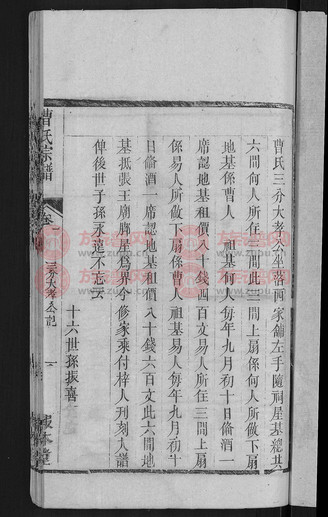 曹氏三分大孝公坐落西家舖左手隨祠屋基總共
六間何人所住三間此三間上扇係何人所做下扇
地基係曹人 祖基何人每年九月初十日俻酒一
席認地基租價八十錢四百文易人所住三間上扇
係易人所做下扇係曹人 祖基易人每年九月初十
日俻酒一席認地基租價八十錢六百文此六間地
基抵張王廟牆屋爲界今修家乘付梓人刋刻入譜
俾後世子孫永遠不忘云
十六世孫振喜
曹氏宗譜
卷一
三分大孝公記
報本堂